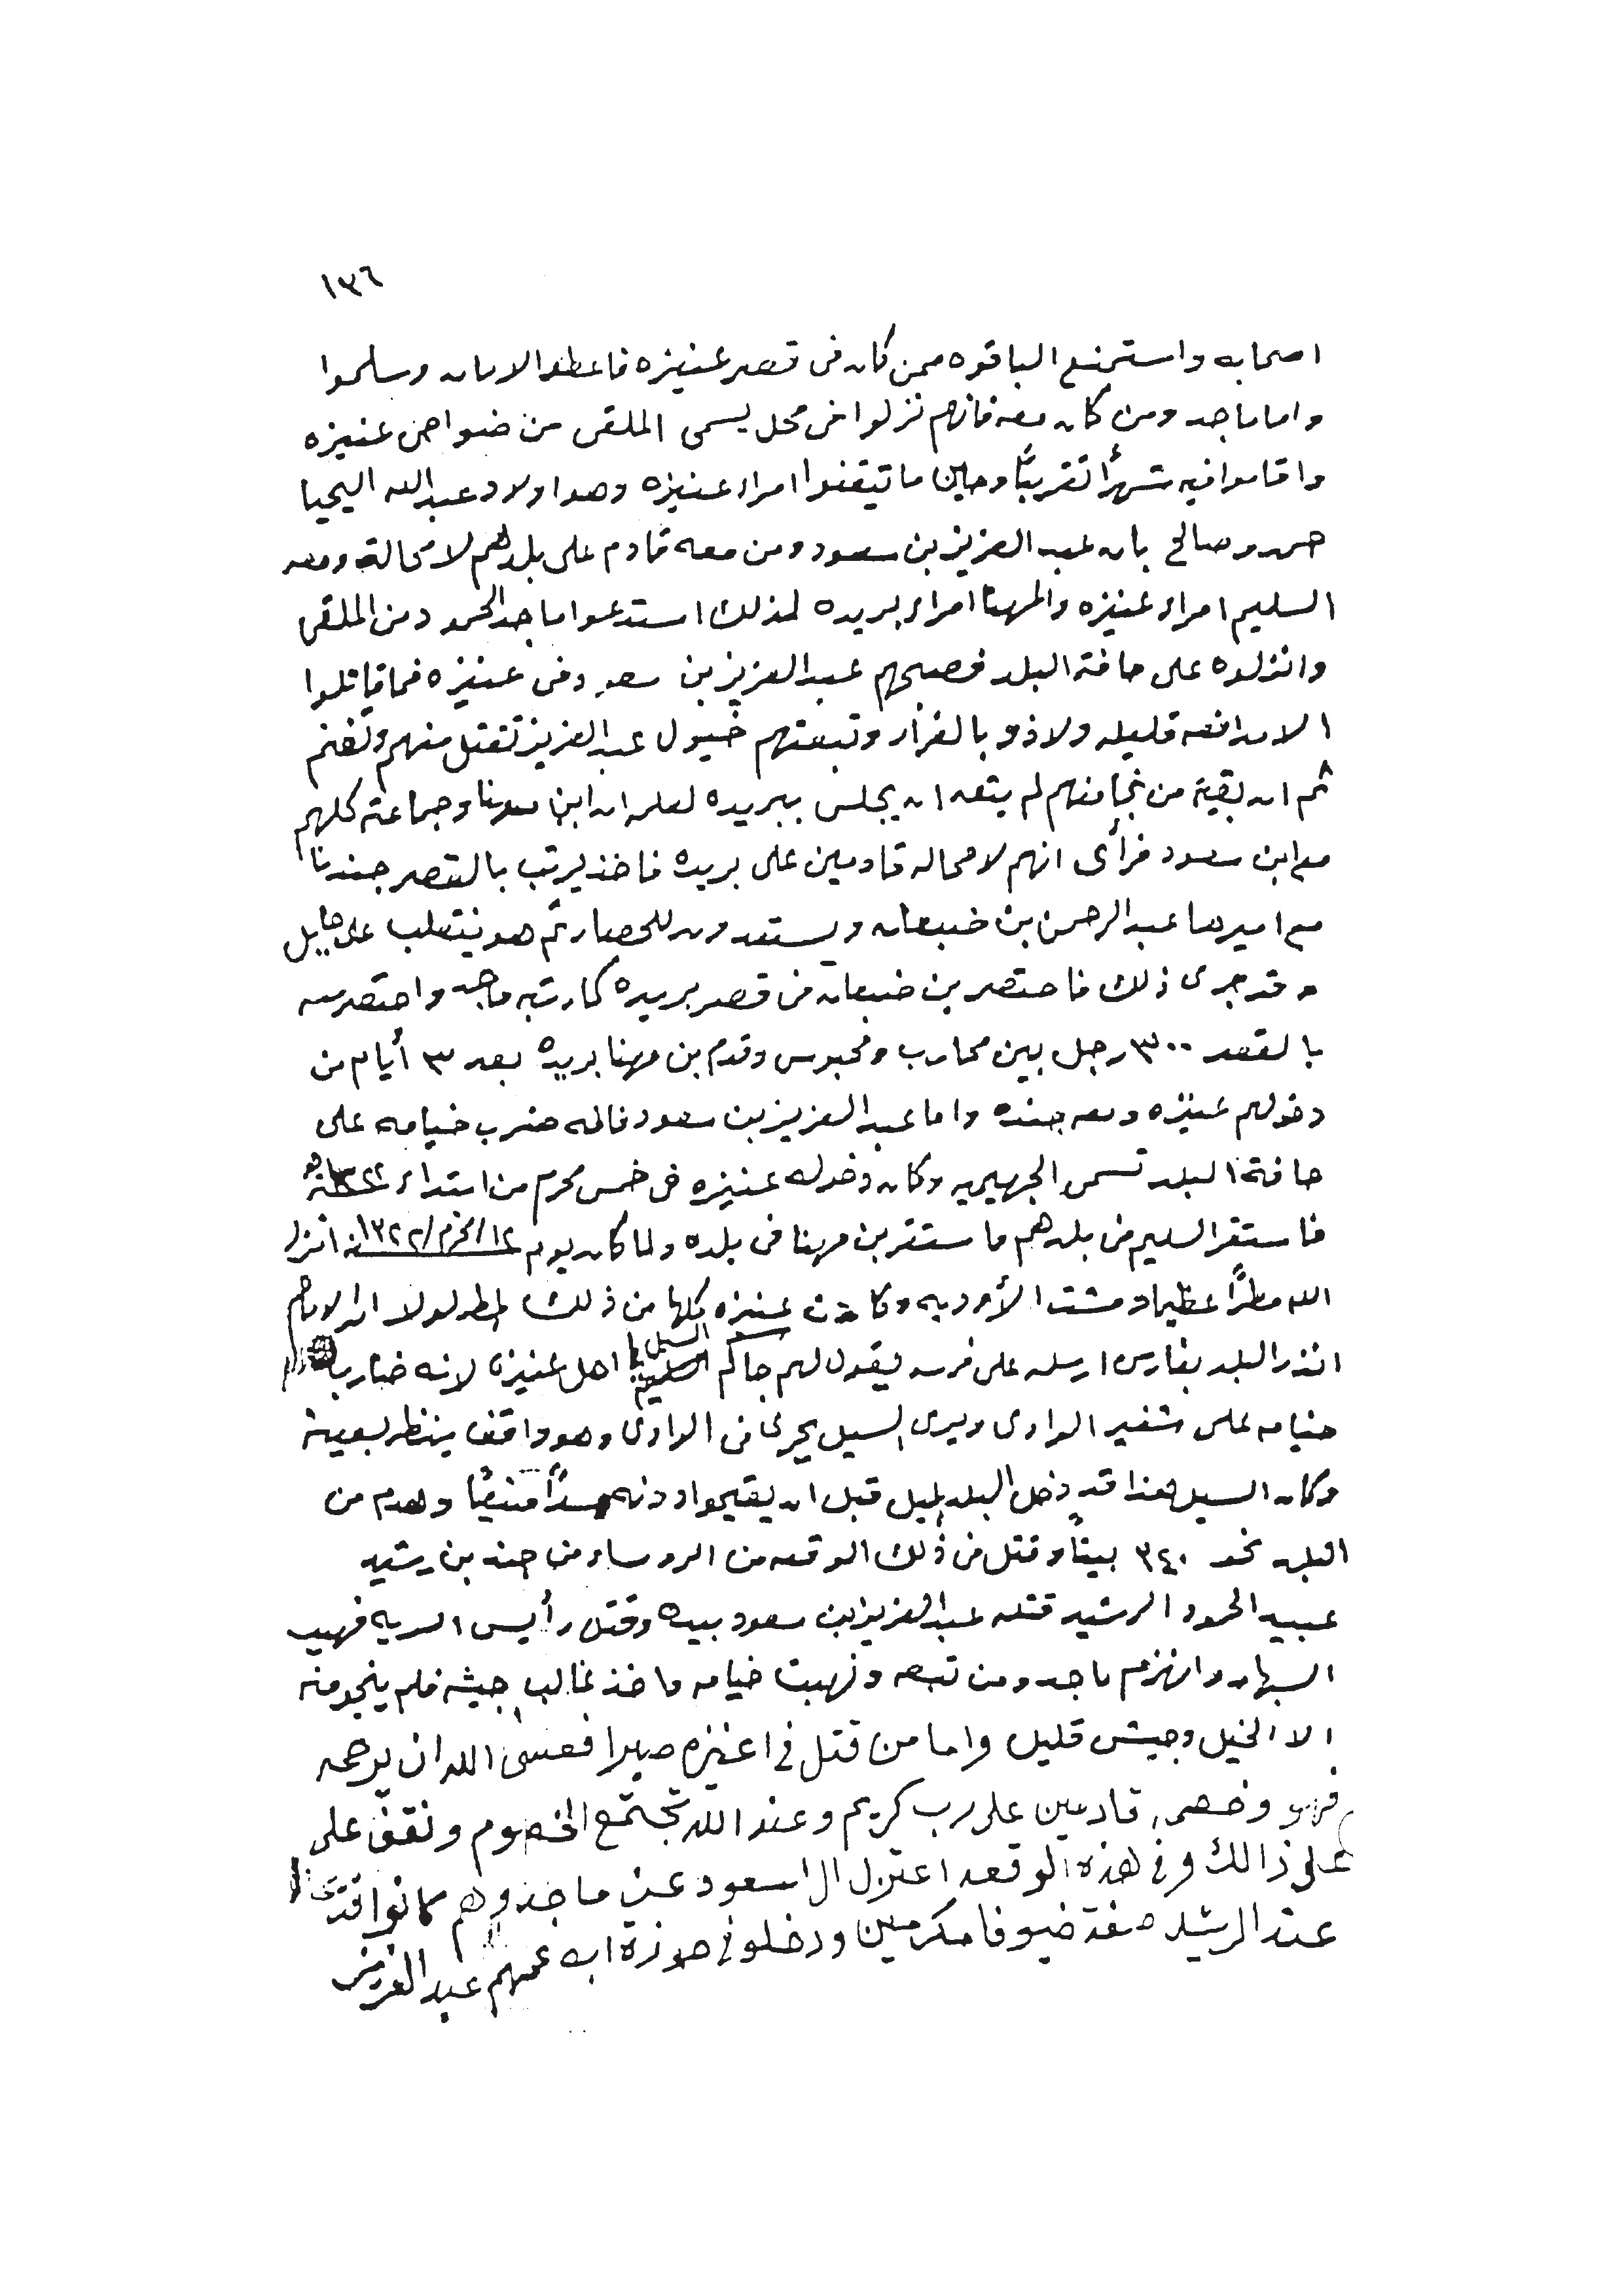 ١٣٦
اصحابه واستمنع الباقوه ممن كان فى قصر عنيزه فاعطو الامان وسلموا
واما ماجد ومن كان معه فانهم نزلوا فى محل يسمى الملقى من ضواحى عنيزه
واقاموا فيه شهرأً تقريبًا وحاين ما تيقنوا امراء عنيزه وهم اولاد عبدالله اليحيا
حمد وصالح بان عبد العزيز بن سعود ومن معه قادم على بلدهم لا محالة ومعه
السليم امراء عنيزه والمهنا امراء بريده لمذلك استدعوا ماجد الحمود من الملقى
وانزلوه على حافة البلد فصبحهم عبد العزيز بن سعود فى عنيزه فما قاتلوا
الا مدافعه قليله ولاذو بالفرار وتبعتهم خيول عبد العزيز تقتل منهم وتغنم
ثم ان بقية من نجا منهم لم يتعد ان يجلس ببريده لعلمه ان ابن مهنا وجماعته كلهم
مع ابن سعود فرأى انهم لا محاله قادمين على بريده فاخذ يرتب بالقصر جندنا
مع اميرها عبد الرحمن بن ضبعان ويستعدون للحصار ثم هو ينقلب على حايل
وقد جرى ذلك فاحتصر بن ضبعان فى قصر بريده كما رتبه ماجد واحتصر معه
بالقصر ٣٠٠ رجل بين محارب ومحبوس وقدم بن مهنا بريده بعد ٣ أيام من
دخولهم عنيزه ومعه جنده واما عبد العزيز بن سعود فانه ضرب خيامه على
حافة البلد تسمى الجهيميه وكان دخوله عنيزه فى خمس محرم من ابتداء ١٣٢٢ه
فاستقر السليم فى بلدهم واستقر بن مهنا فى بلده ولما كان يوم ١٢/محرم/١٣٢٢ه انزل
الله مطرًا عظيما ومشت الأوديه وكادت عنيزه كلها من ذلك المطر لولا ان الامام
انذر البلد بفارس ارسله على فرسه ليقول لهم جاكم السيل يا اهل عنيزه لانه ضارب
خيامه على شفير الوادى ويرى السيل يجرى فى الوادى وهو واقف ينظر بعينه
وكان السيل هذا قد دخل البلد بليل قبل ان يقيموا دونه سدًا منيعًا وهدم من
البلد نحو ٣٤٠ بيتاً وقتل فى ذلك الوقعه من الروساء من جند بن رشيد
عبيد الحمود الرشيد قتله عبد العزيز بن سعود بيده وقتل رأيس السريه فهيد
السبهان وانهزم ماجد ومن تبعه ونهبت خيامه واخذ غالب جيشه فلم ينجو منه
الا الخيل وجيش قليل واما من قتل فى اعنيزه صبرا فعسى الله ان يرحمه
فهو وخصمه قادمين على رب كريم وعند الله تجتمع الخصوم ونقف على
على ذالك وفى هذه الوقعه اعتزل ال سعود عن ماجد وهم كانوا
عند الرشيد ضيوفا مكرمين ودخلو فى حوزة ابن عمهم عبد العزيز